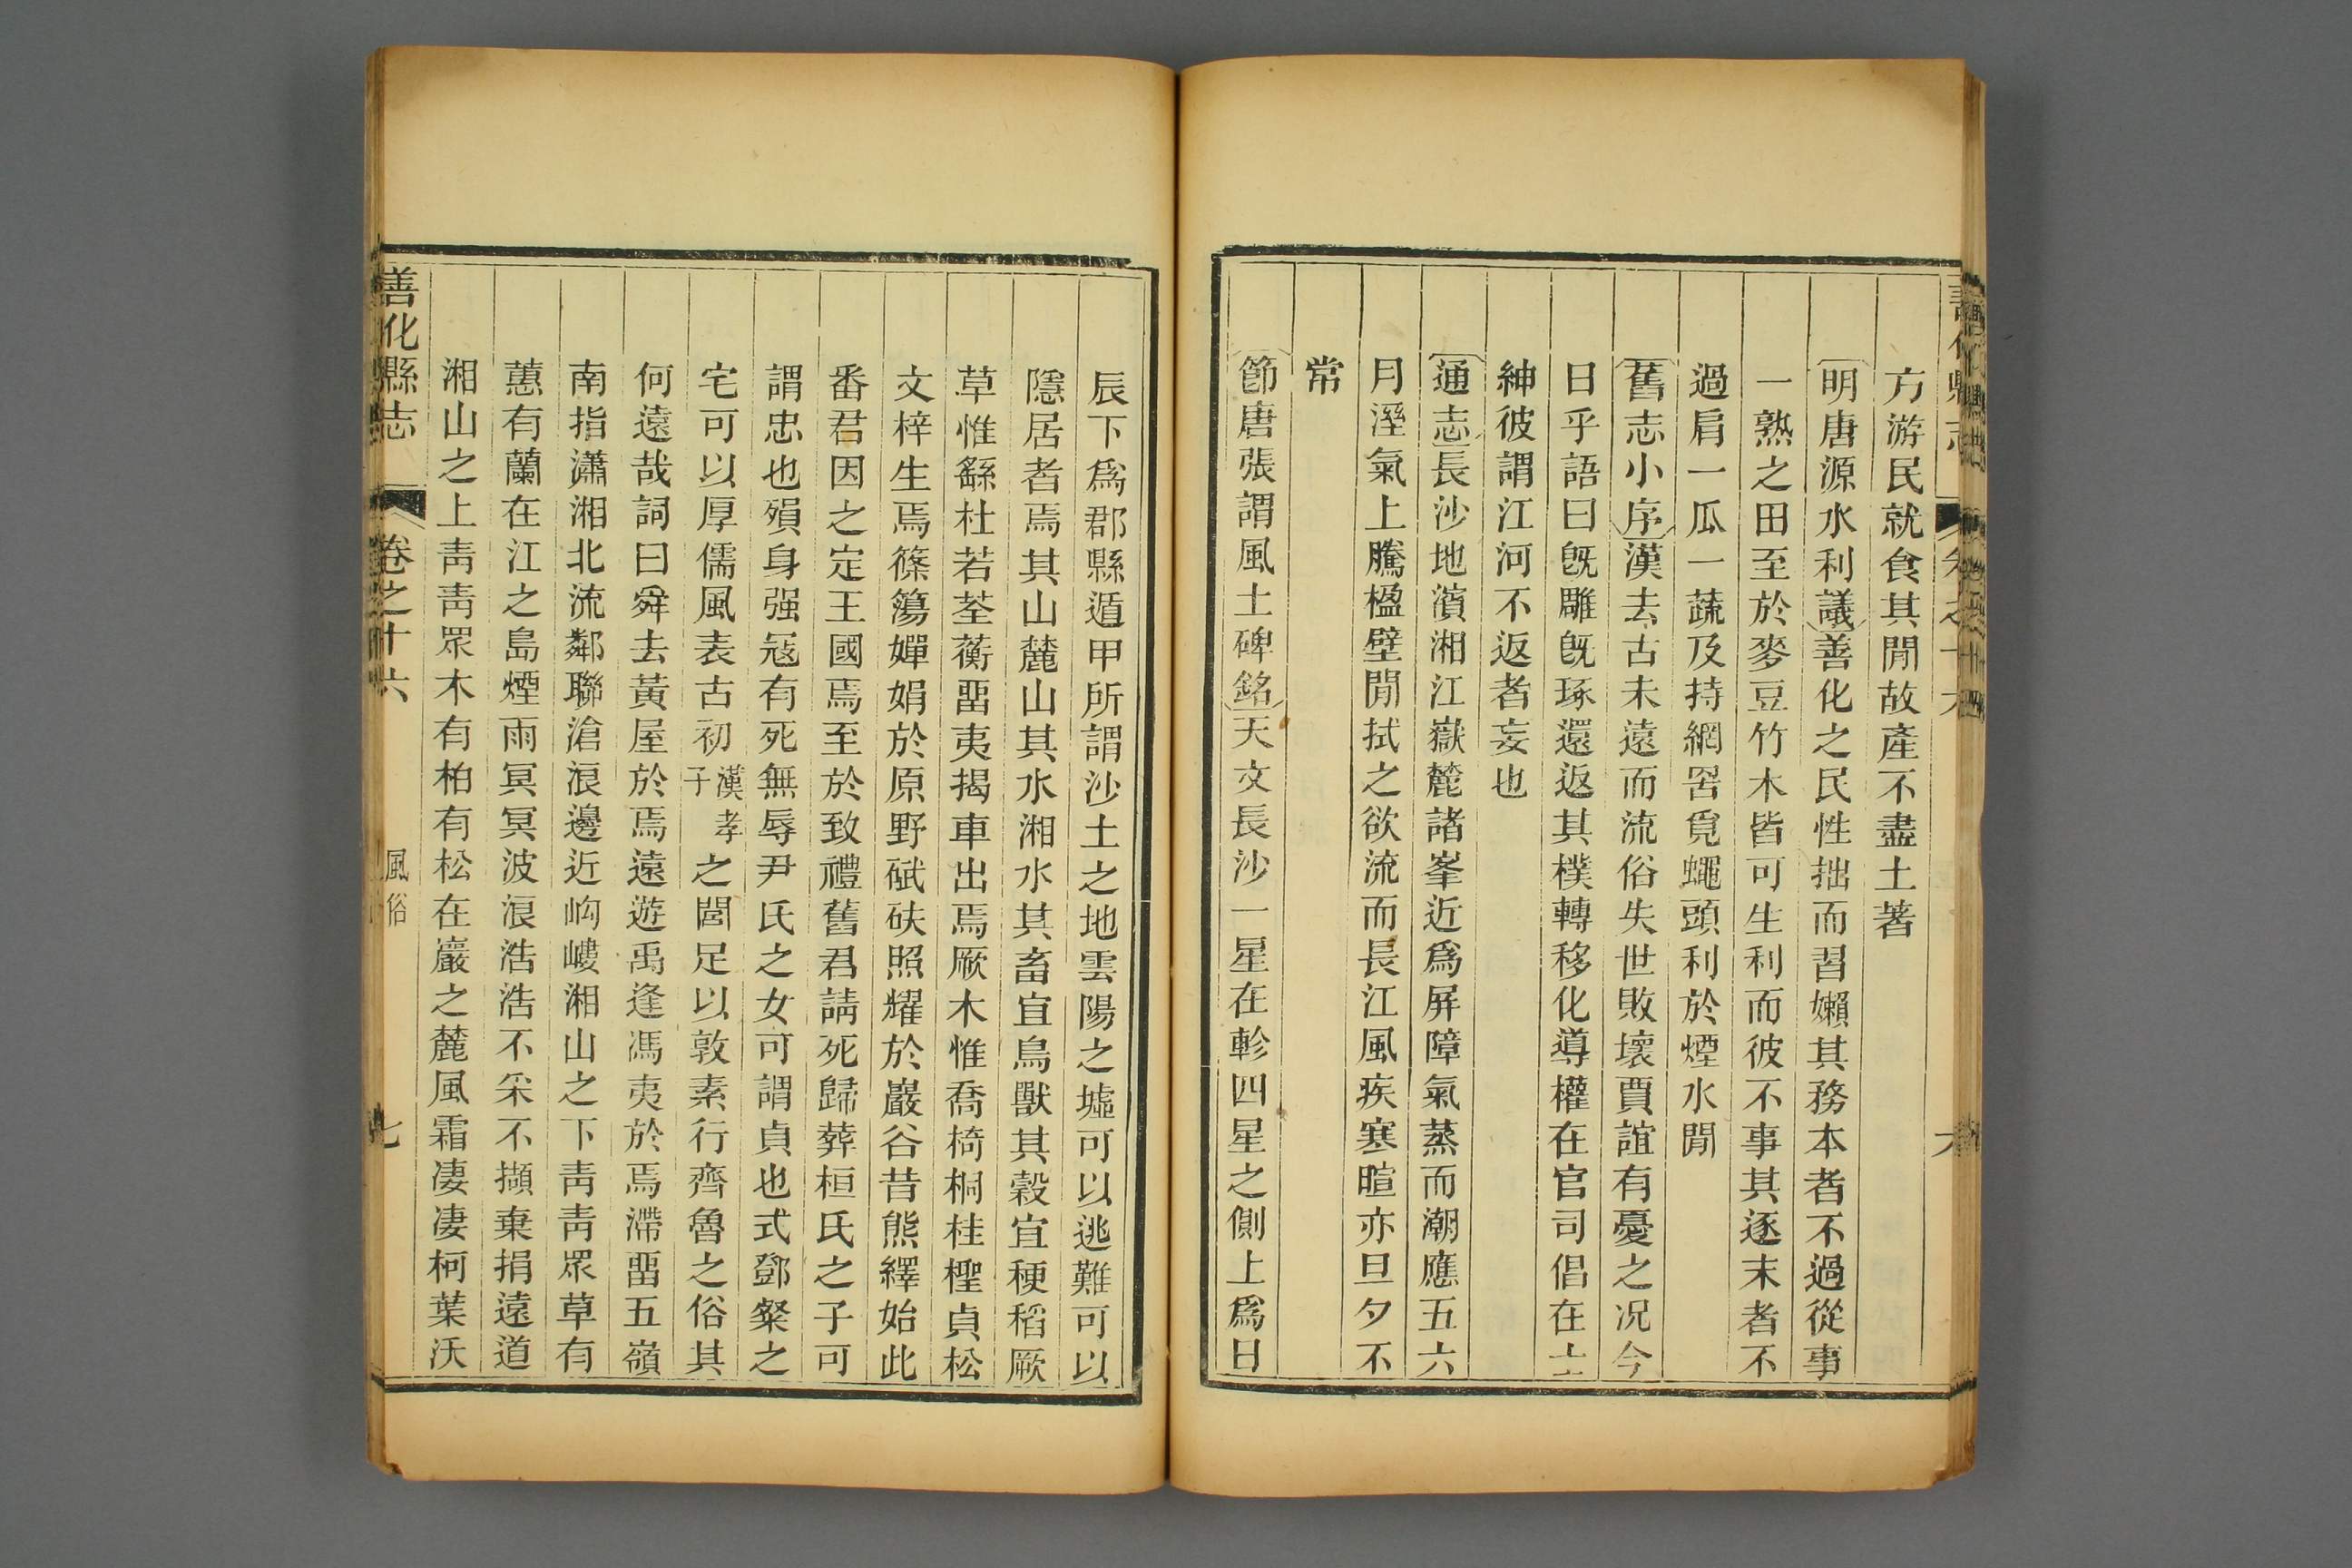 方游民就食其閒故產不盡土著
明唐源水利議善化之民性拙而習嬾其務本者不過從事
一熟之田至於麥豆竹木皆可生利而彼不事其逐末者不
過肩一瓜一蔬及持網罟覓蠅頭利於煙水閒
舊志小序漢去古未遠而流俗失世敗壞賈誼有憂之况今
日乎語曰旣雕旣琢還返其樸轉移化導權在官司倡在士
紳彼謂江河不返者妄也
通志長沙地濱湘江嶽麓諸峯近爲屏障氣蒸而潮應五六
月溼氣上騰楹壁閒拭之欲流而長江風疾寒暄亦旦夕不
常
節唐張謂風土碑銘天文長沙一星在軫四星之側上爲日
辰下爲郡縣遁甲所謂沙土之地雲陽之墟可以逃難可以
隱居者焉其山麓山其水湘水其畜宜鳥獸其穀宜稉稻厥
草惟繇杜若荃蘅畱夷揭車出焉厥木惟喬椅桐桂檉貞松
文梓生焉篠簜嬋娟於原野碔砆照耀於巖谷昔熊繹始此
番君因之定王國焉至於致禮舊君請死歸葬桓氏之子可
謂忠也殞身强寇有死無辱尹氏之女可謂貞也式鄧粲之
宅可以厚儒風表古初漢孝子之閭足以敦素行齊魯之俗其
何遠哉詞曰舜去黃屋於焉遠遊禹逢馮夷於焉滯畱五嶺
南指瀟湘北流鄰聯滄浪邊近岣嶁湘山之下靑靑眾草有
蕙有蘭在江之島煙雨冥冥波浪浩浩不采不擷棄捐遠道
湘山之上靑靑眾木有柏有松在巖之麓風霜凄凄柯葉沃
善化縣志 卷之十六 風俗 七